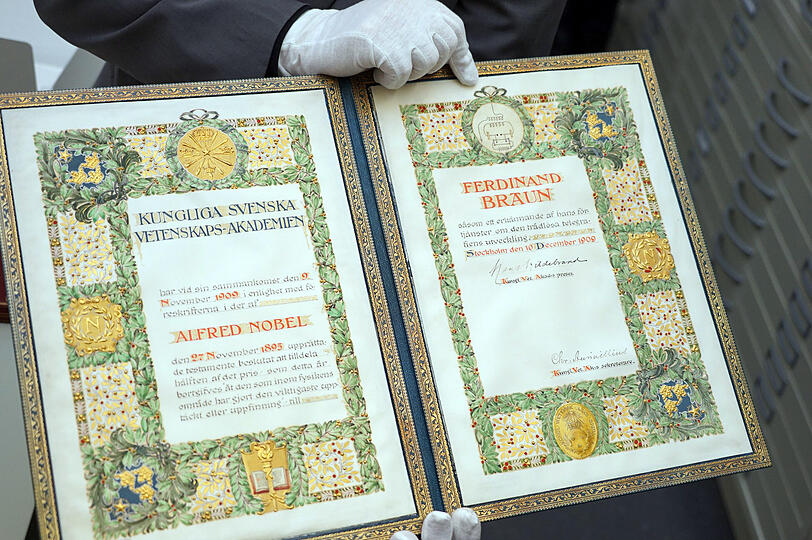 KUNGLIGA SVENSKA
VETENSKAPS-AKADEMIEN
har vid sin sammankomst den 9
November 1909 i enlighet med fö-
reskrifterna i det af
ALFRED NOBEL
den 27 November 1895 upprätta-
de testamente beslutat att tilldela
hälften af det pris, som detta år
bortgifves åt den som inom fysikens
område har gjort den viktigaste upp
täckt eller uppfinning, till
N
FERDINAND
BRAUN
såsom ett erkännande af hans för-
tjänster om den trådlösa telegra-
fiens utveckling
Stockholm den 10 December 1909
Hans Hildebrand
Kungl. Vet. Akad:s preses.
N
Chr. Aurivillius
Kungl. Vet. Akad:s sekreterare.